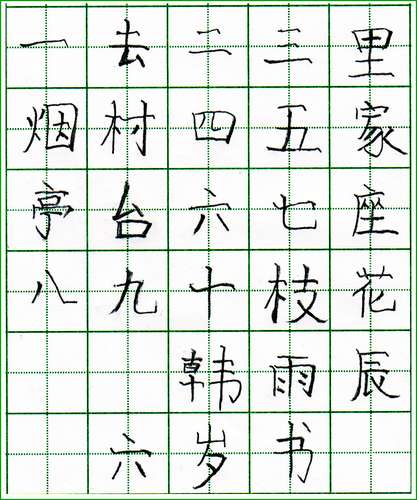 一去二三里
烟村四五家
亭台六七座
八九十枝花
韩雨辰
六岁书